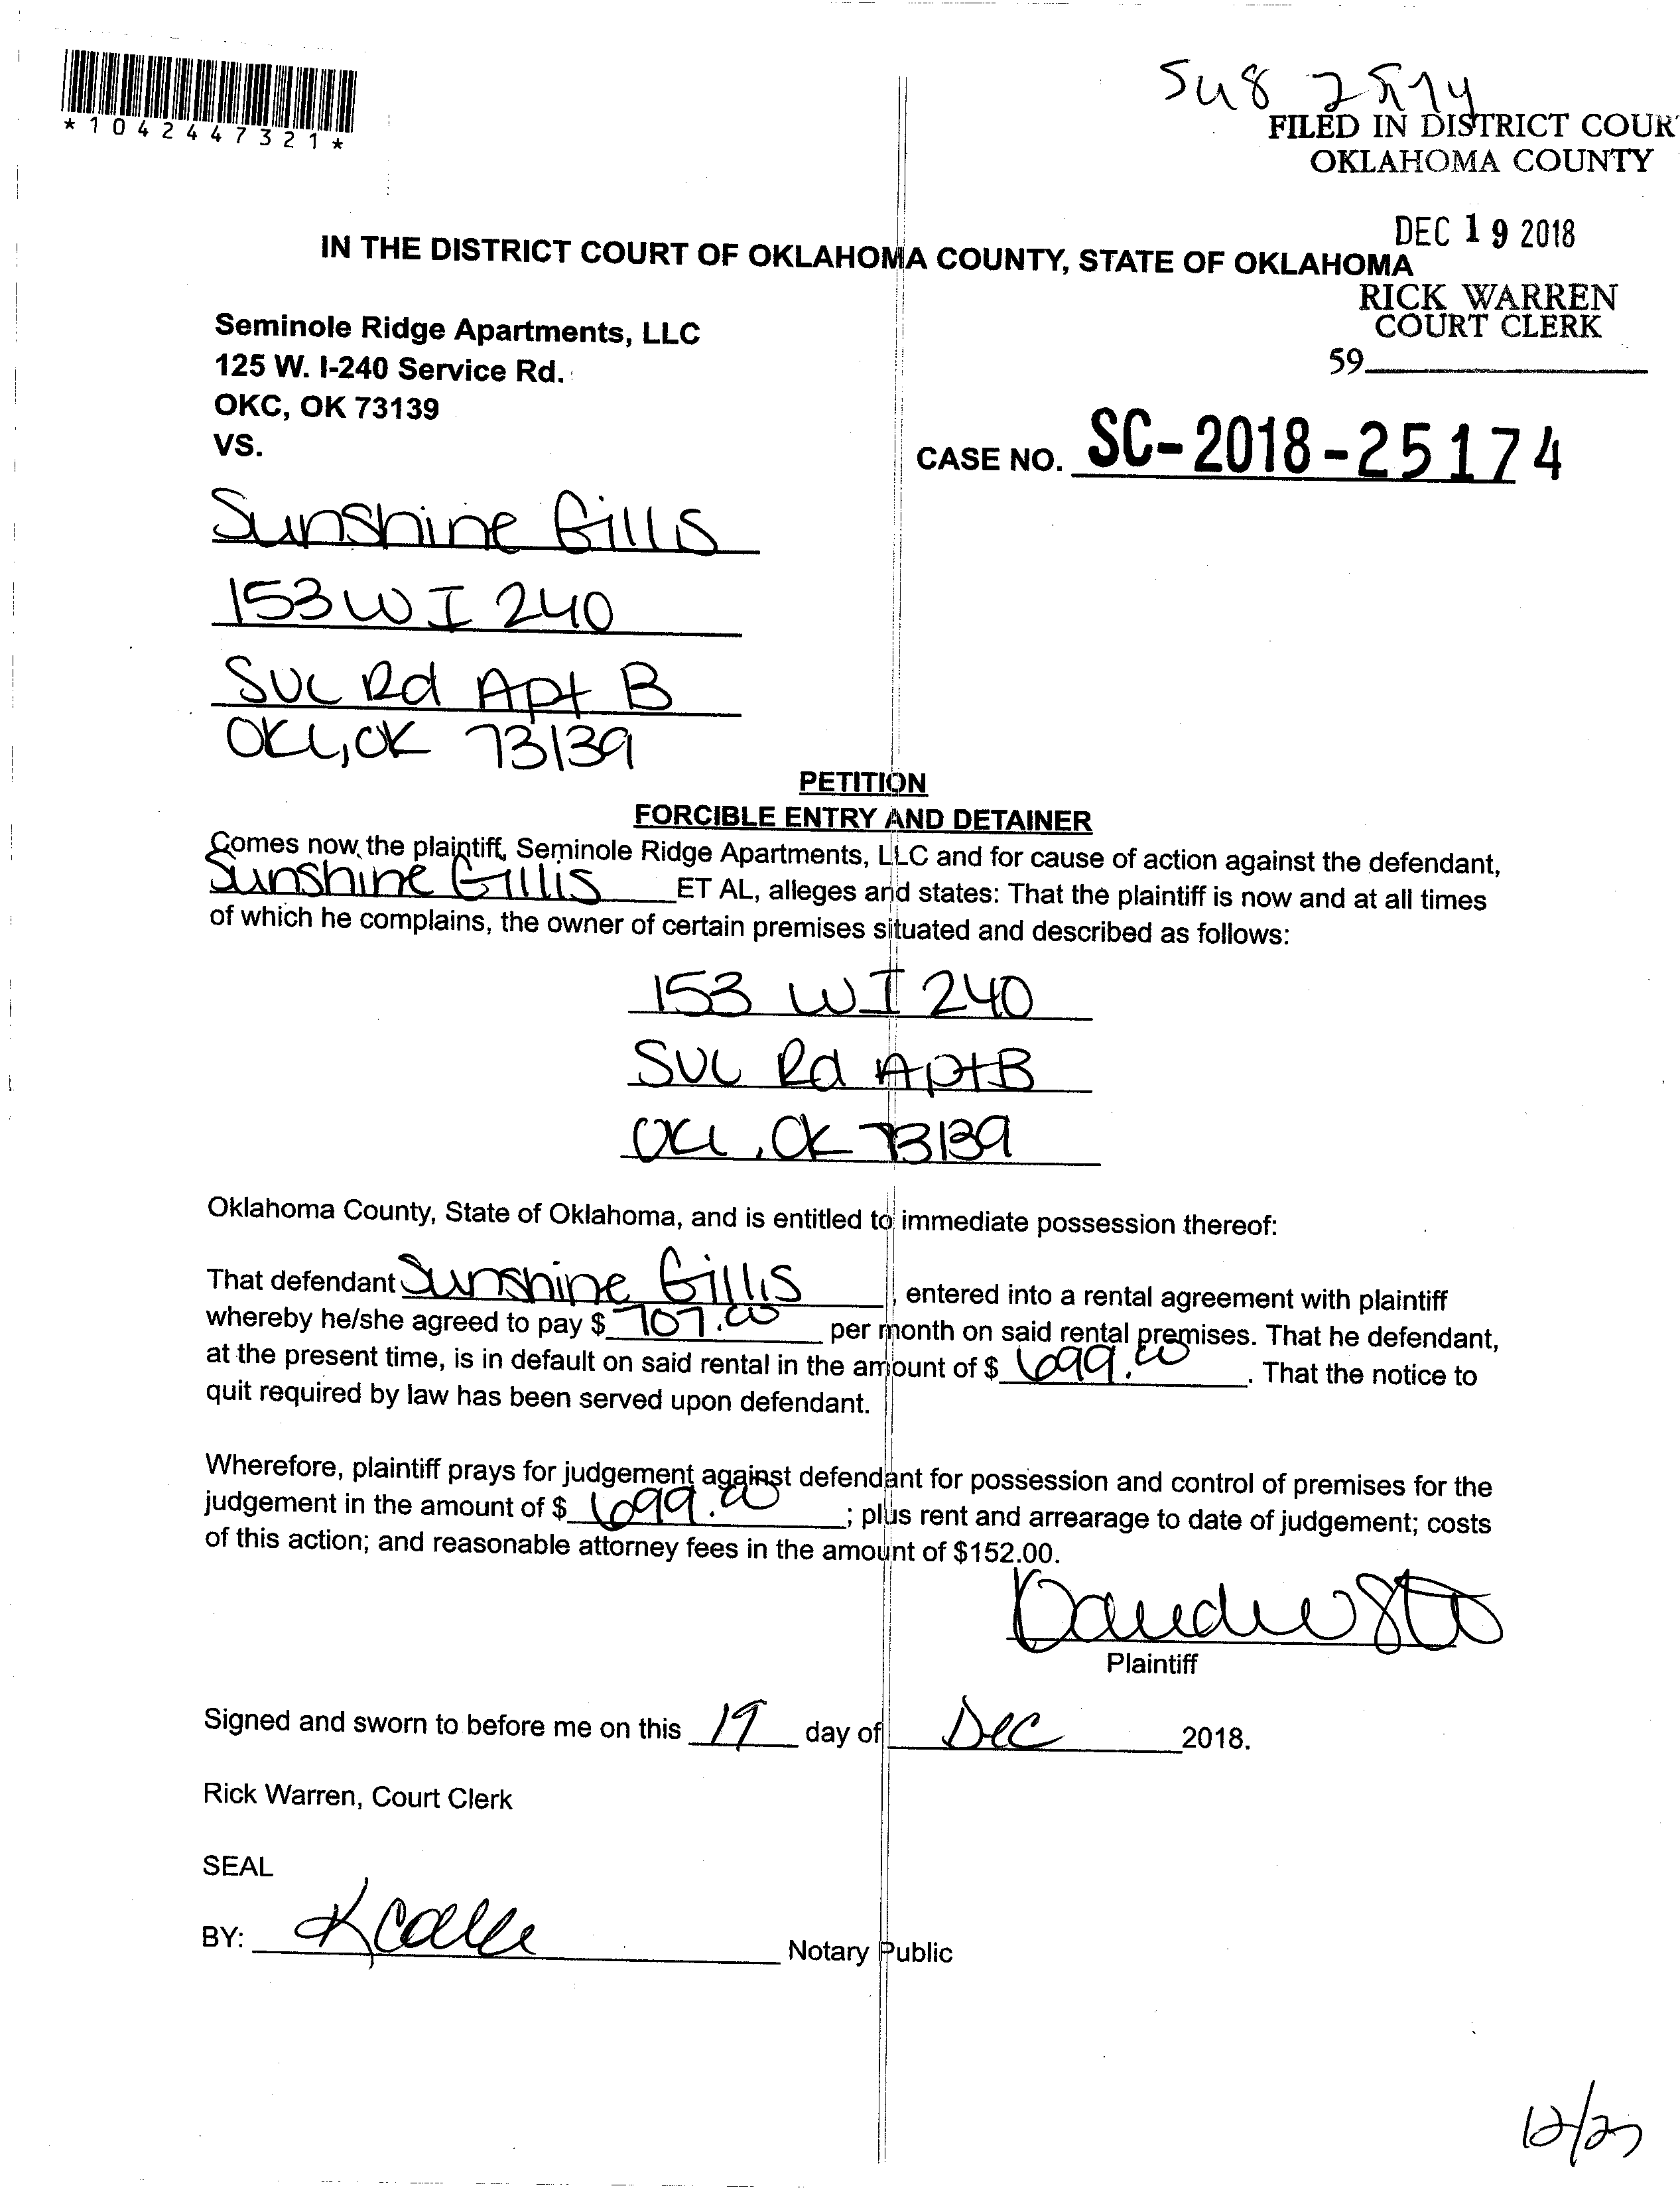 *1042447321*
FILED IN DISTRICT COUR
OKLAHOMA COUNTY
DEC 19 2018
IN THE DISTRICT COURT OF OKLAHOMA COUNTY, STATE OF OKLAHOMA
RICK WARREN
COURT CLERK
59
Seminole Ridge Apartments, LLC
125 W. I-240 Service Rd.
OKC, OK 73139
VS.
CASE NO. SC-2018-25174
Sunshine Gills
153 W I 240
SVC Rd Apt B
OKC, OK 73139
PETITION
FORCIBLE ENTRY AND DETAINER
Comes now the plaintiff, Seminole Ridge Apartments, LLC and for cause of action against the defendant,
Sunshine Gillis ET AL, alleges and states: That the plaintiff is now and at all times
of which he complains, the owner of certain premises situated and described as follows:
153 W I 240
SVC Rd Apt B
OKC, OK 73139
Oklahoma County, State of Oklahoma, and is entitled to immediate possession thereof:
That defendant Sunshine Gillis, entered into a rental agreement with plaintiff
whereby he/she agreed to pay $ 707.00 per month on said rental premises. That he defendant,
at the present time, is in default on said rental in the amount of $ 699.00. That the notice to
quit required by law has been served upon defendant.
Wherefore, plaintiff prays for judgement against defendant for possession and control of premises for the
judgement in the amount of $ 699.00; plus rent and arrearage to date of judgement; costs
of this action; and reasonable attorney fees in the amount of $152.00.
Plaintiff
Signed and sworn to before me on this 19 day of Dec 2018.
Rick Warren, Court Clerk
SEAL
BY: Notary Public